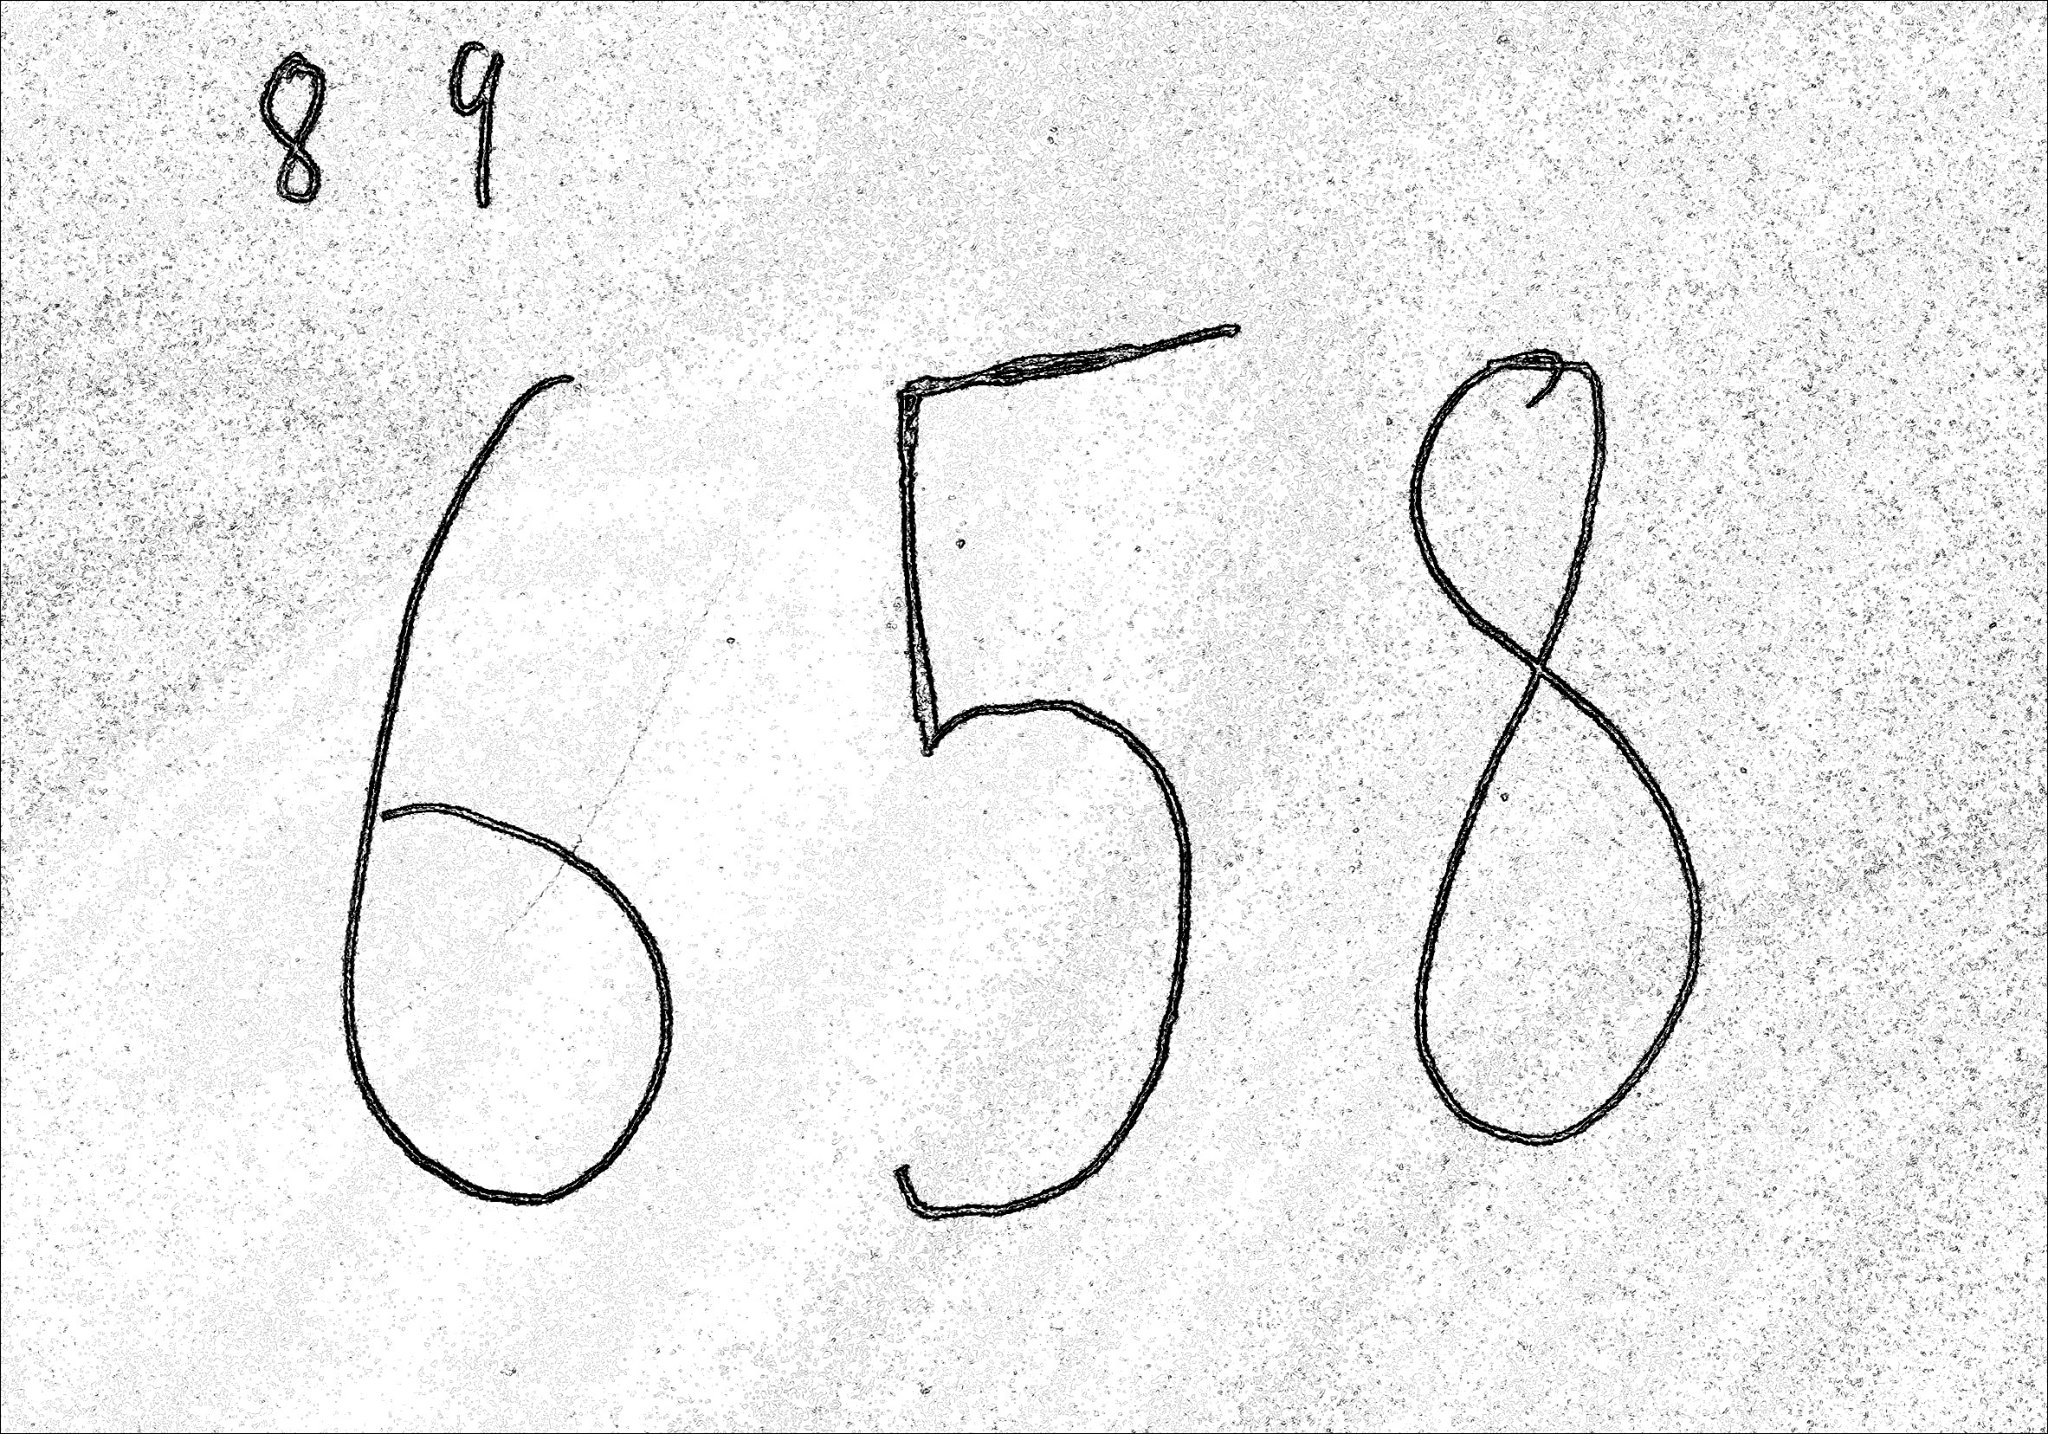 8 9
658